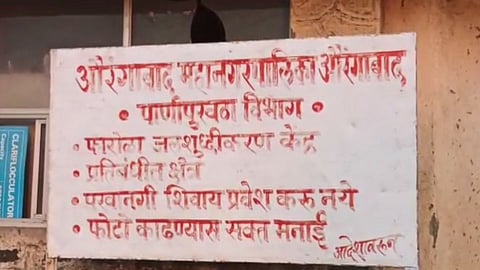 औरंगाबाद महानगरपालिका औरंगाबाद
• पाणीपुरवठा विभाग •
• फारोळा जलशुध्दीकरण केंद्र
• प्रतिबंधीत क्षेत्र
• परवानगी शिवाय प्रवेश करू नये
• फोटो काढण्यास सक्त मनाई
आदेशावरून
CLARIFLOCCULATOR
Capacity